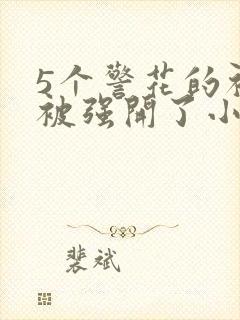 5个警花的初
被强開了小
裴斌